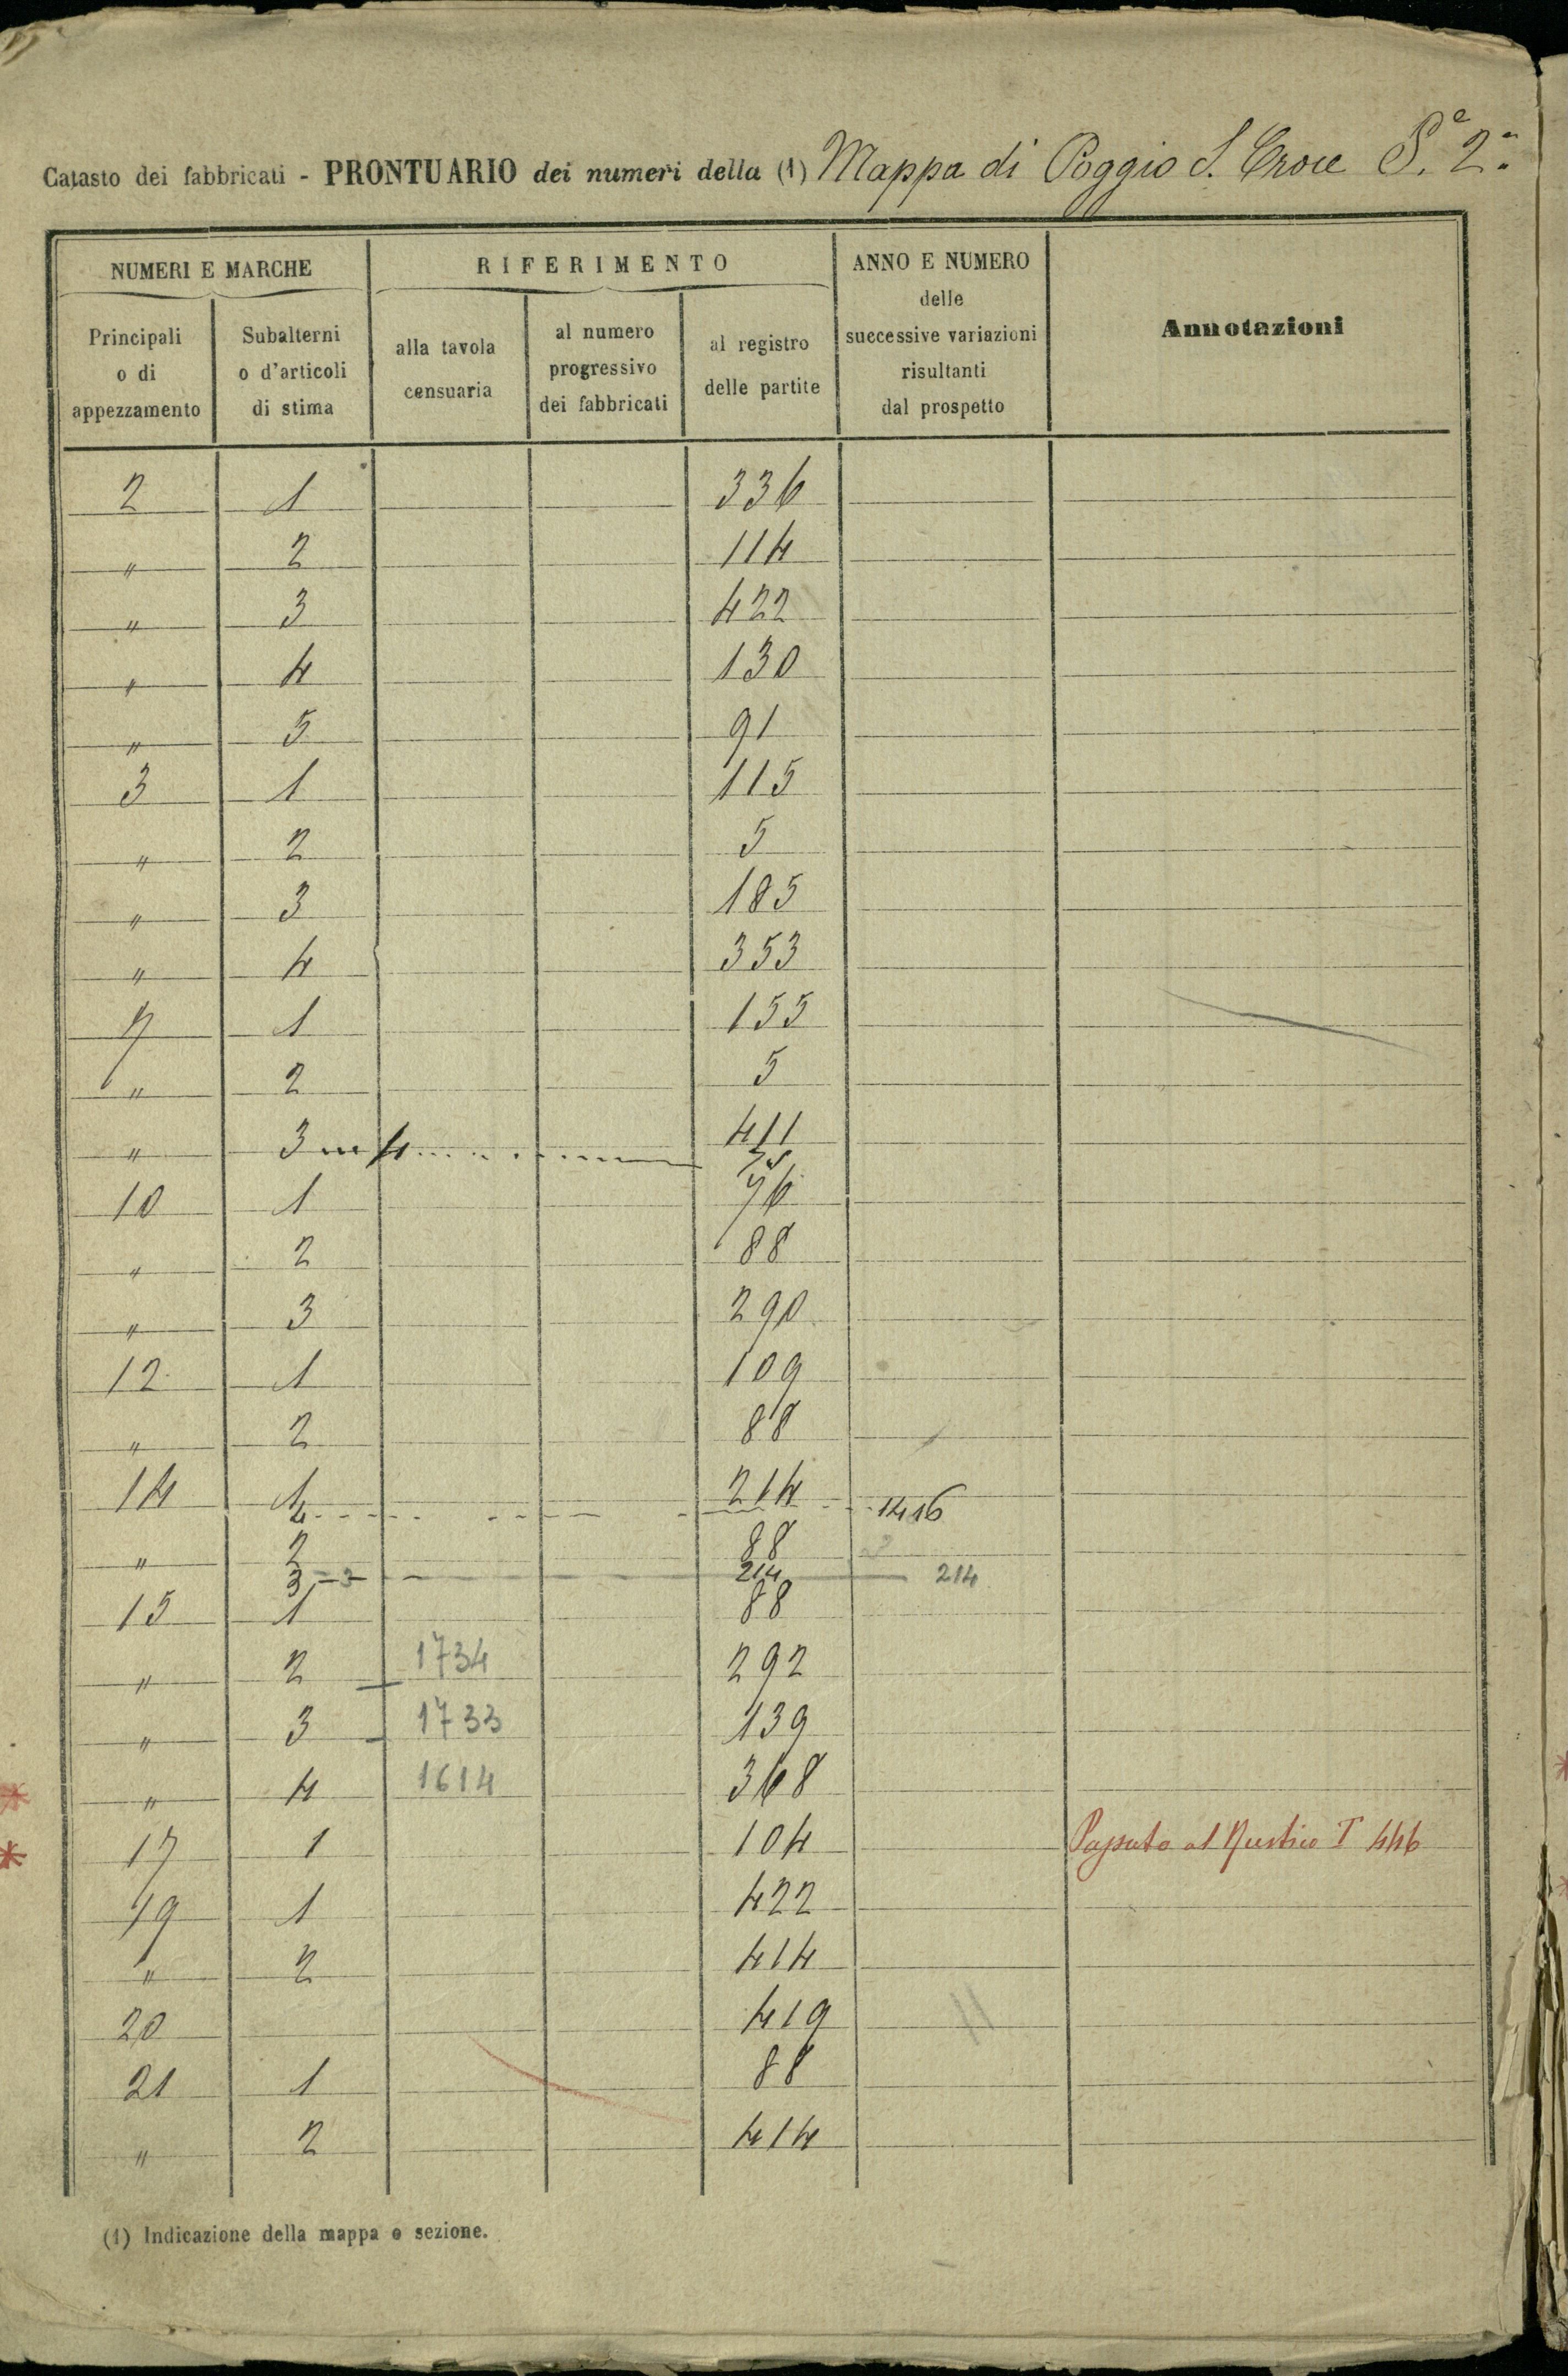 Catasto dei fabbricati - PRONTUARIO dei numeri della (1) Mappa di Poggio S. Croce S.e 2.a
NUMERI E MARCHE
Principali o di appezzamento
Subalterni o d'articoli di stima
RIFERIMENTO
alla tavola censuaria
al numero progressivo dei fabbricati
al registro delle partite
ANNO E NUMERO delle successive variazioni risultanti dal prospetto
Annotazioni
2 1 336
" 2 114
" 3 422
" 4 130
" 5 91
3 1 115
" 2 5
" 3 185
" 4 353
7 1 155
" 2 5
" 3 4 411
10 1 76
" 2 88
" 3 290
12 1 109
" 2 88
14 1 214
4 1416
" 2 88
3 - 3 - 214 214
15 1 88
" 2 1734 292
" 3 1733 139
" 4 1614 368
17 1 104 Passato al Rustico T 446
19 1 422
" 2 414
20 419
21 1 88
" 2 414
(1) Indicazione della mappa o sezione.